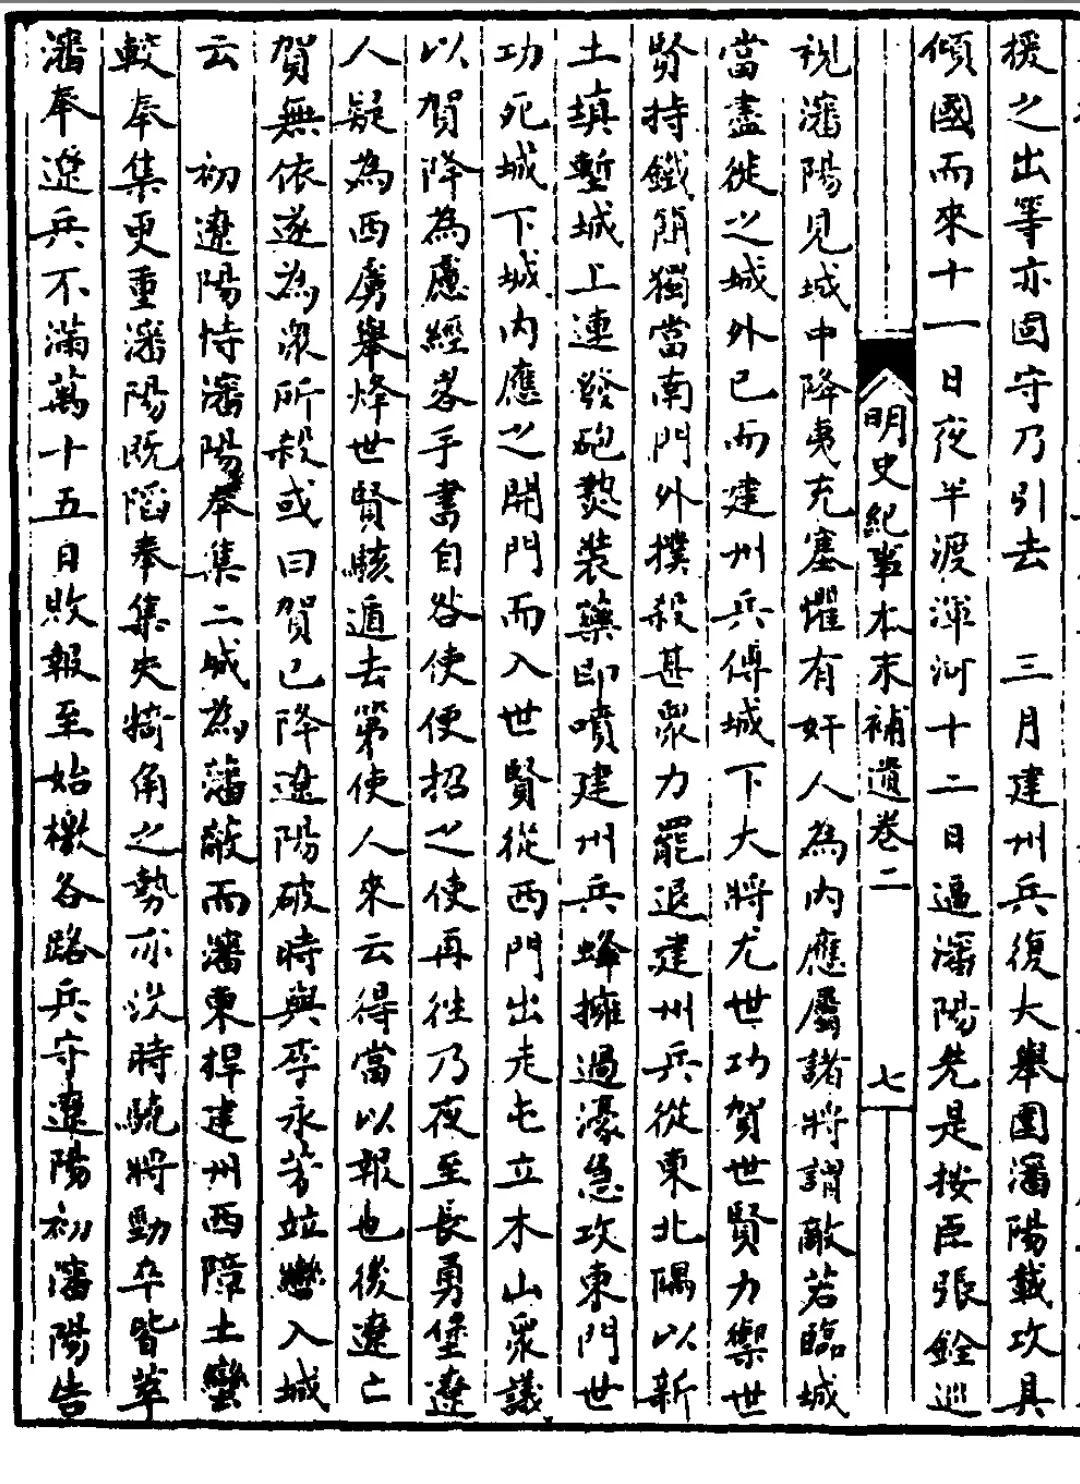 援之出等亦固守乃引去　三月建州兵復大舉圍瀋陽載攻具
傾國而來十一日夜半渡渾河十二日逼瀋陽先是按臣張銓巡
明史紀事本末補遺卷二　七
視瀋陽見城中降夷充塞懼有奸人為內應屬諸將謂敵若臨城
當盡徙之城外已而建州兵傅城下大將尤世功賀世賢力禦世
賢持鐵簡獨當南門外撲殺甚眾力罷退建州兵從東北隅以新
土填塹城上連發砲熱裝藥即噴建州兵蜂擁過濠急攻東門世
功死城下城內應之開門而入世賢從西門出走屯立木山眾議
以賀降為慮經畧手書自咎使使招之使再往乃夜至長勇堡遼
人疑為西虜舉烽世賢駭遁去第使人來云得當以報也後遼亡
賀無依遂為眾所殺或曰賀已降遼陽破時與李永芳並轡入城
云　初遼陽恃瀋陽奉集二城為藩蔽而瀋東捍建州西障土蠻
較奉集更重瀋陽既陷奉集失犄角之勢亦沒時驍將勁卒皆萃
瀋奉遼兵不滿萬十五日敗報至始檄各路兵守遼陽初瀋陽告